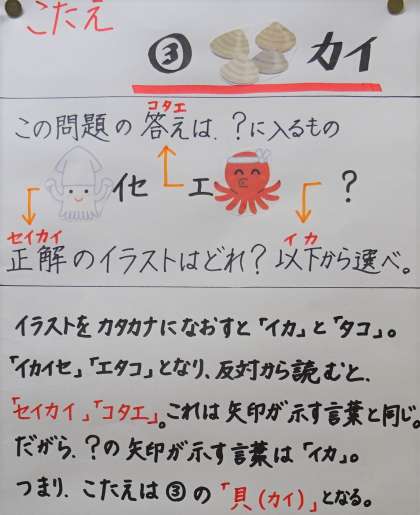 こたえ
③ カイ
コタエ
この問題の答えは、?に入るもの
イセ エ ?
セイカイ イカ
正解のイラストはどれ?以下から選べ。
イラストをカタカナになおすと「イカ」と「タコ」。
「イカイセ」「エタコ」となり、反対から読むと、
「セイカイ」「コタエ」。これは矢印が示す言葉と同じ。
だがら、?の矢印が示す言葉は「イカ」。
つまり、こたえは③の「貝(カイ)」となる。